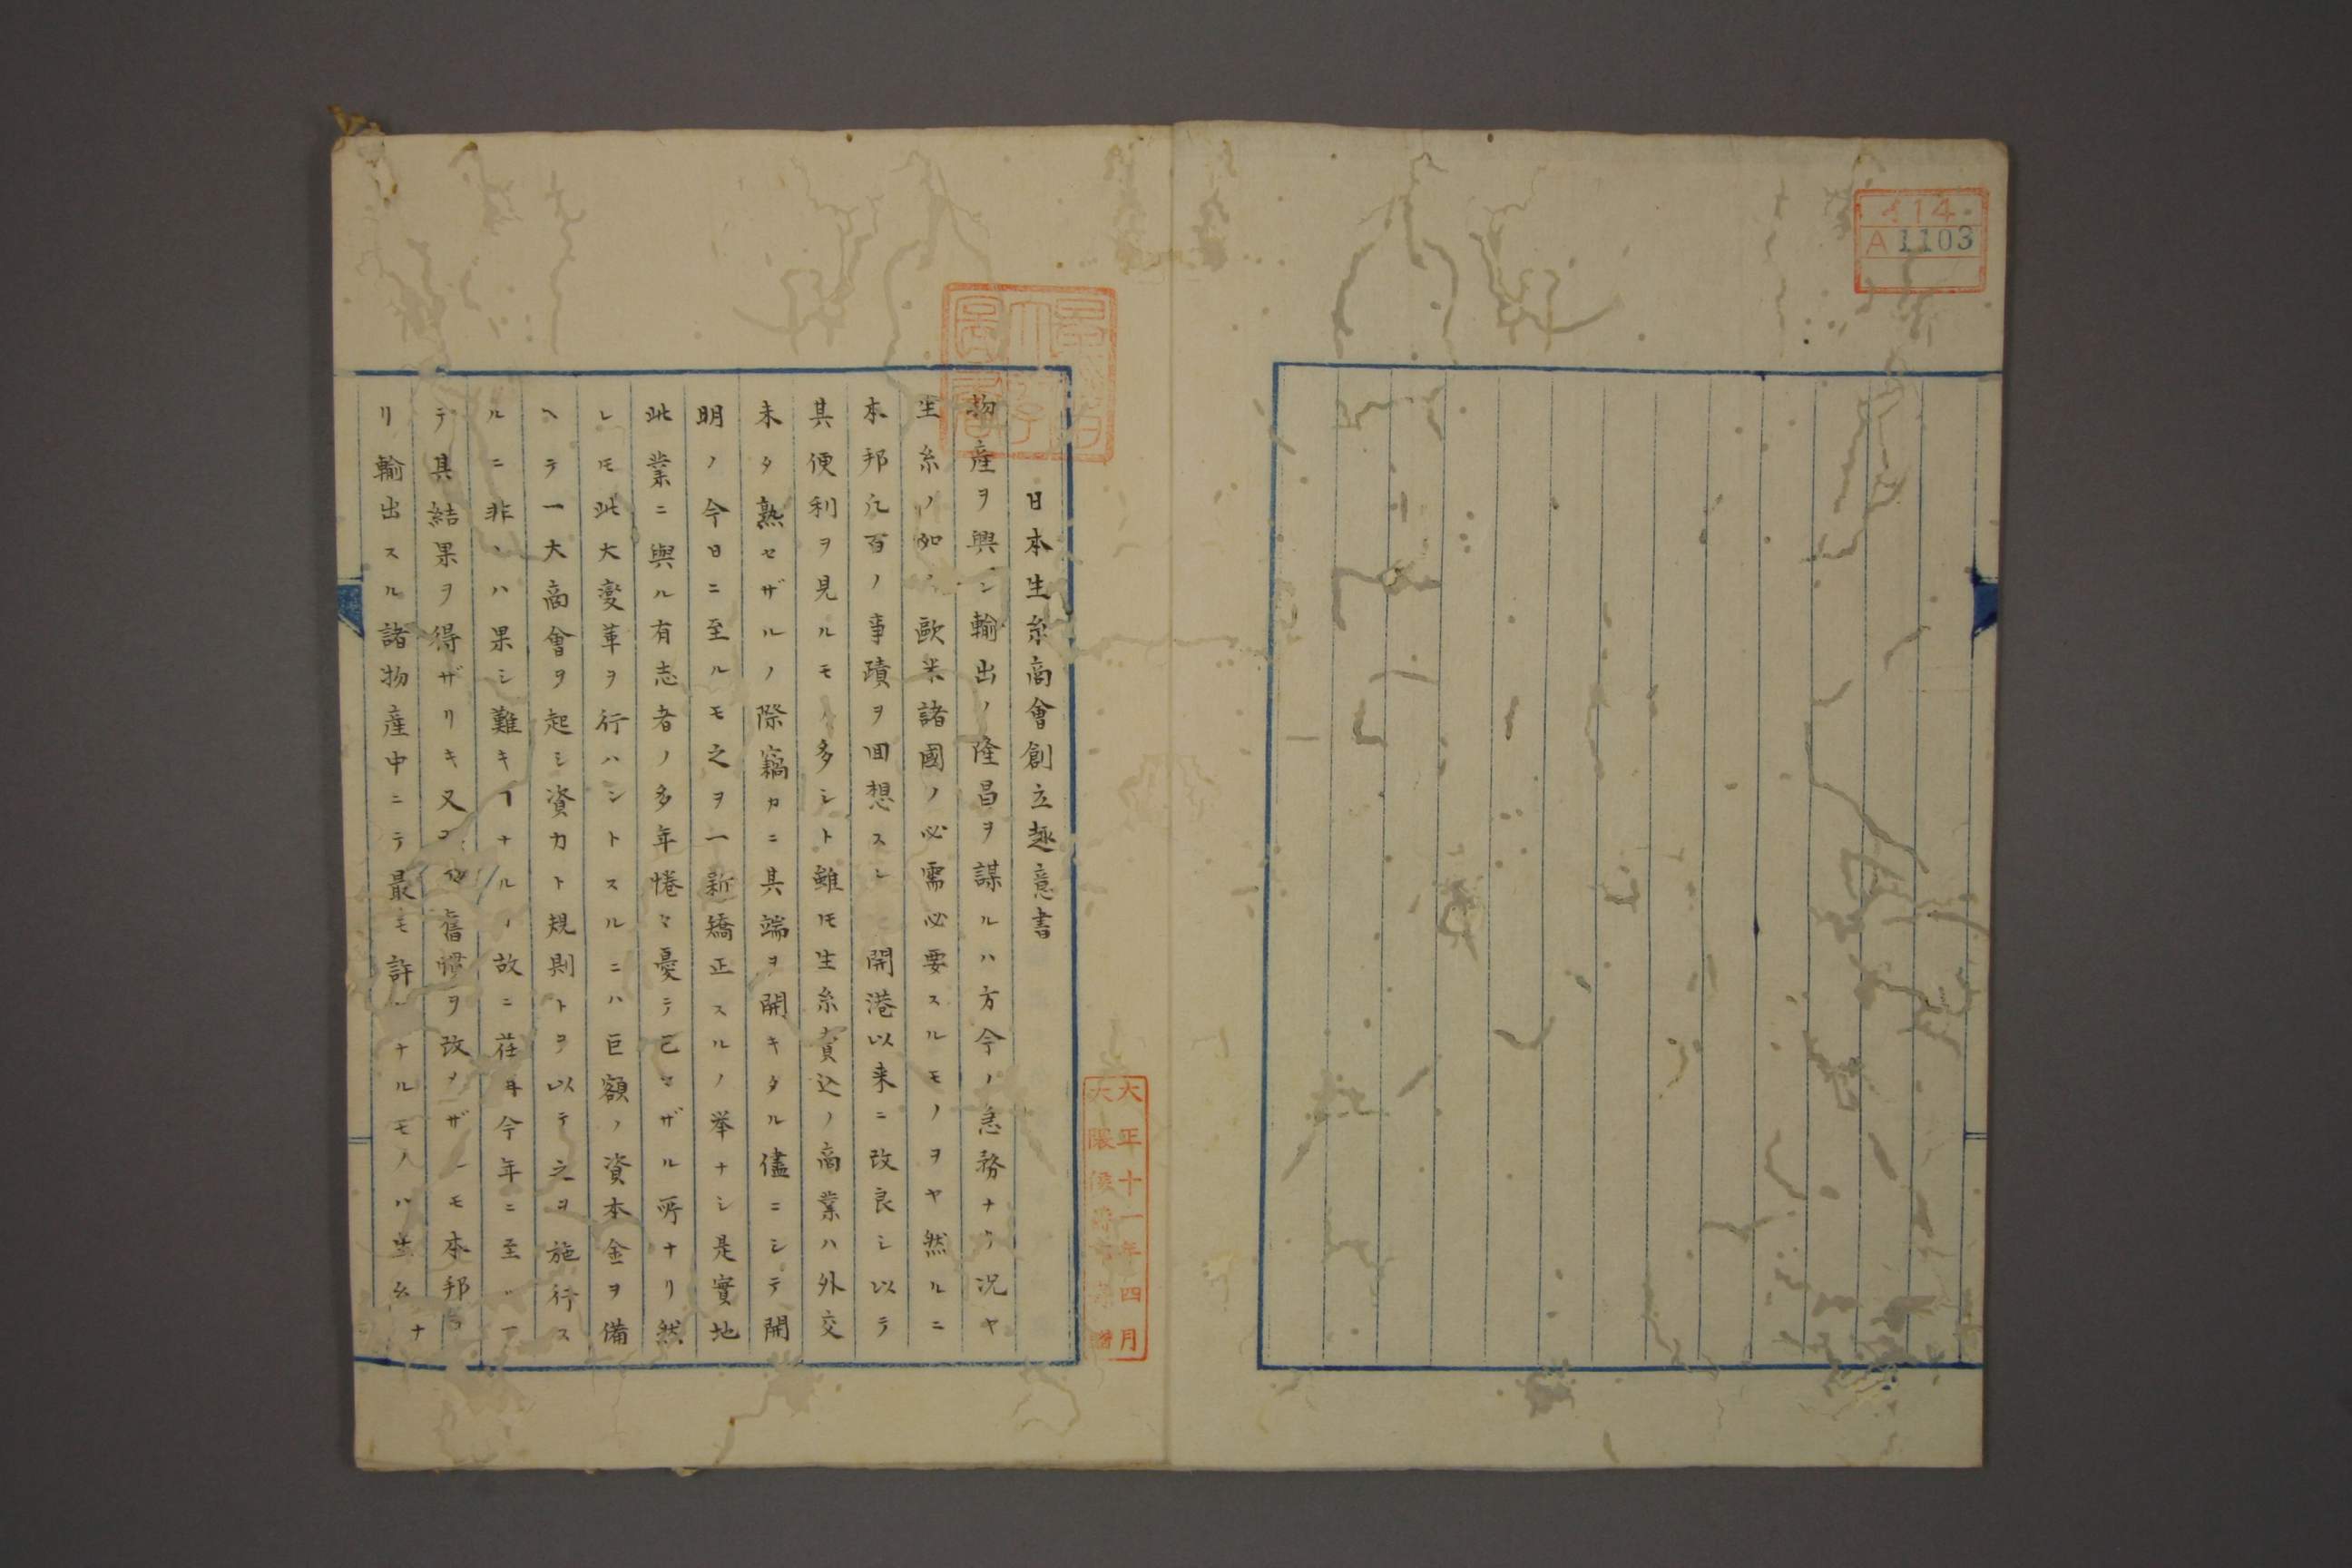 イ14
A1103
大正十一年四月
日本生糸商會創立趣意書
物産ヲ興シ輸出ノ隆昌ヲ謀ルハ方今ノ急務ナリ況ヤ
生糸ノ如ク歐米諸國ノ必需必要スルモノヲヤ然ルニ
本邦凢百ノ事蹟ヲ回想スレ開港以来ニ改良シ以テ
其便利ヲ見ルモノ多シト雖ㇳモ生糸賣込ノ商業ハ外交
未タ熟セザルノ際竊カニ其端ヲ開キタル儘ニシテ開
明ノ今日ニ至ルモ之ヲ一新矯正スルノ挙ナシ是實地
此業ニ與ル有志者ノ多年惓々憂テ已マザル所ナリ然
レㇳモ此大変革ヲ行ハントスルニハ巨額ノ資本金ヲ備
ヘテ一大商會ヲ起シ資力ト規則トヲ以テ之ヲ施行ス
ルニ非レハ果シ難キヿナル故ニ荏苒今年ニ至
テ其結果ヲ得ザリキ又舊慣ヲ改メザモ本邦
リ輸出スル諸物産中ニテ最モ許ナルモノハ生糸ナ